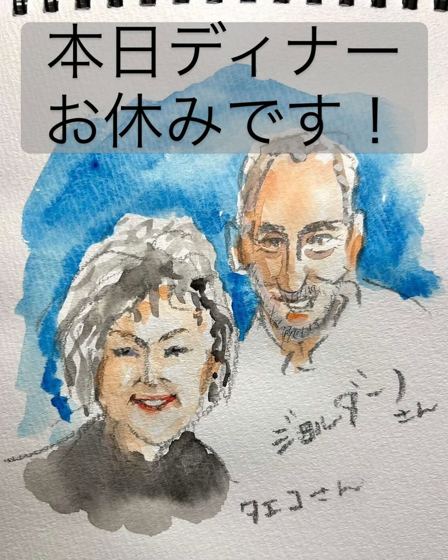 本日ディナー
お休みです！
ジョルダーノ
さん
クエコさん